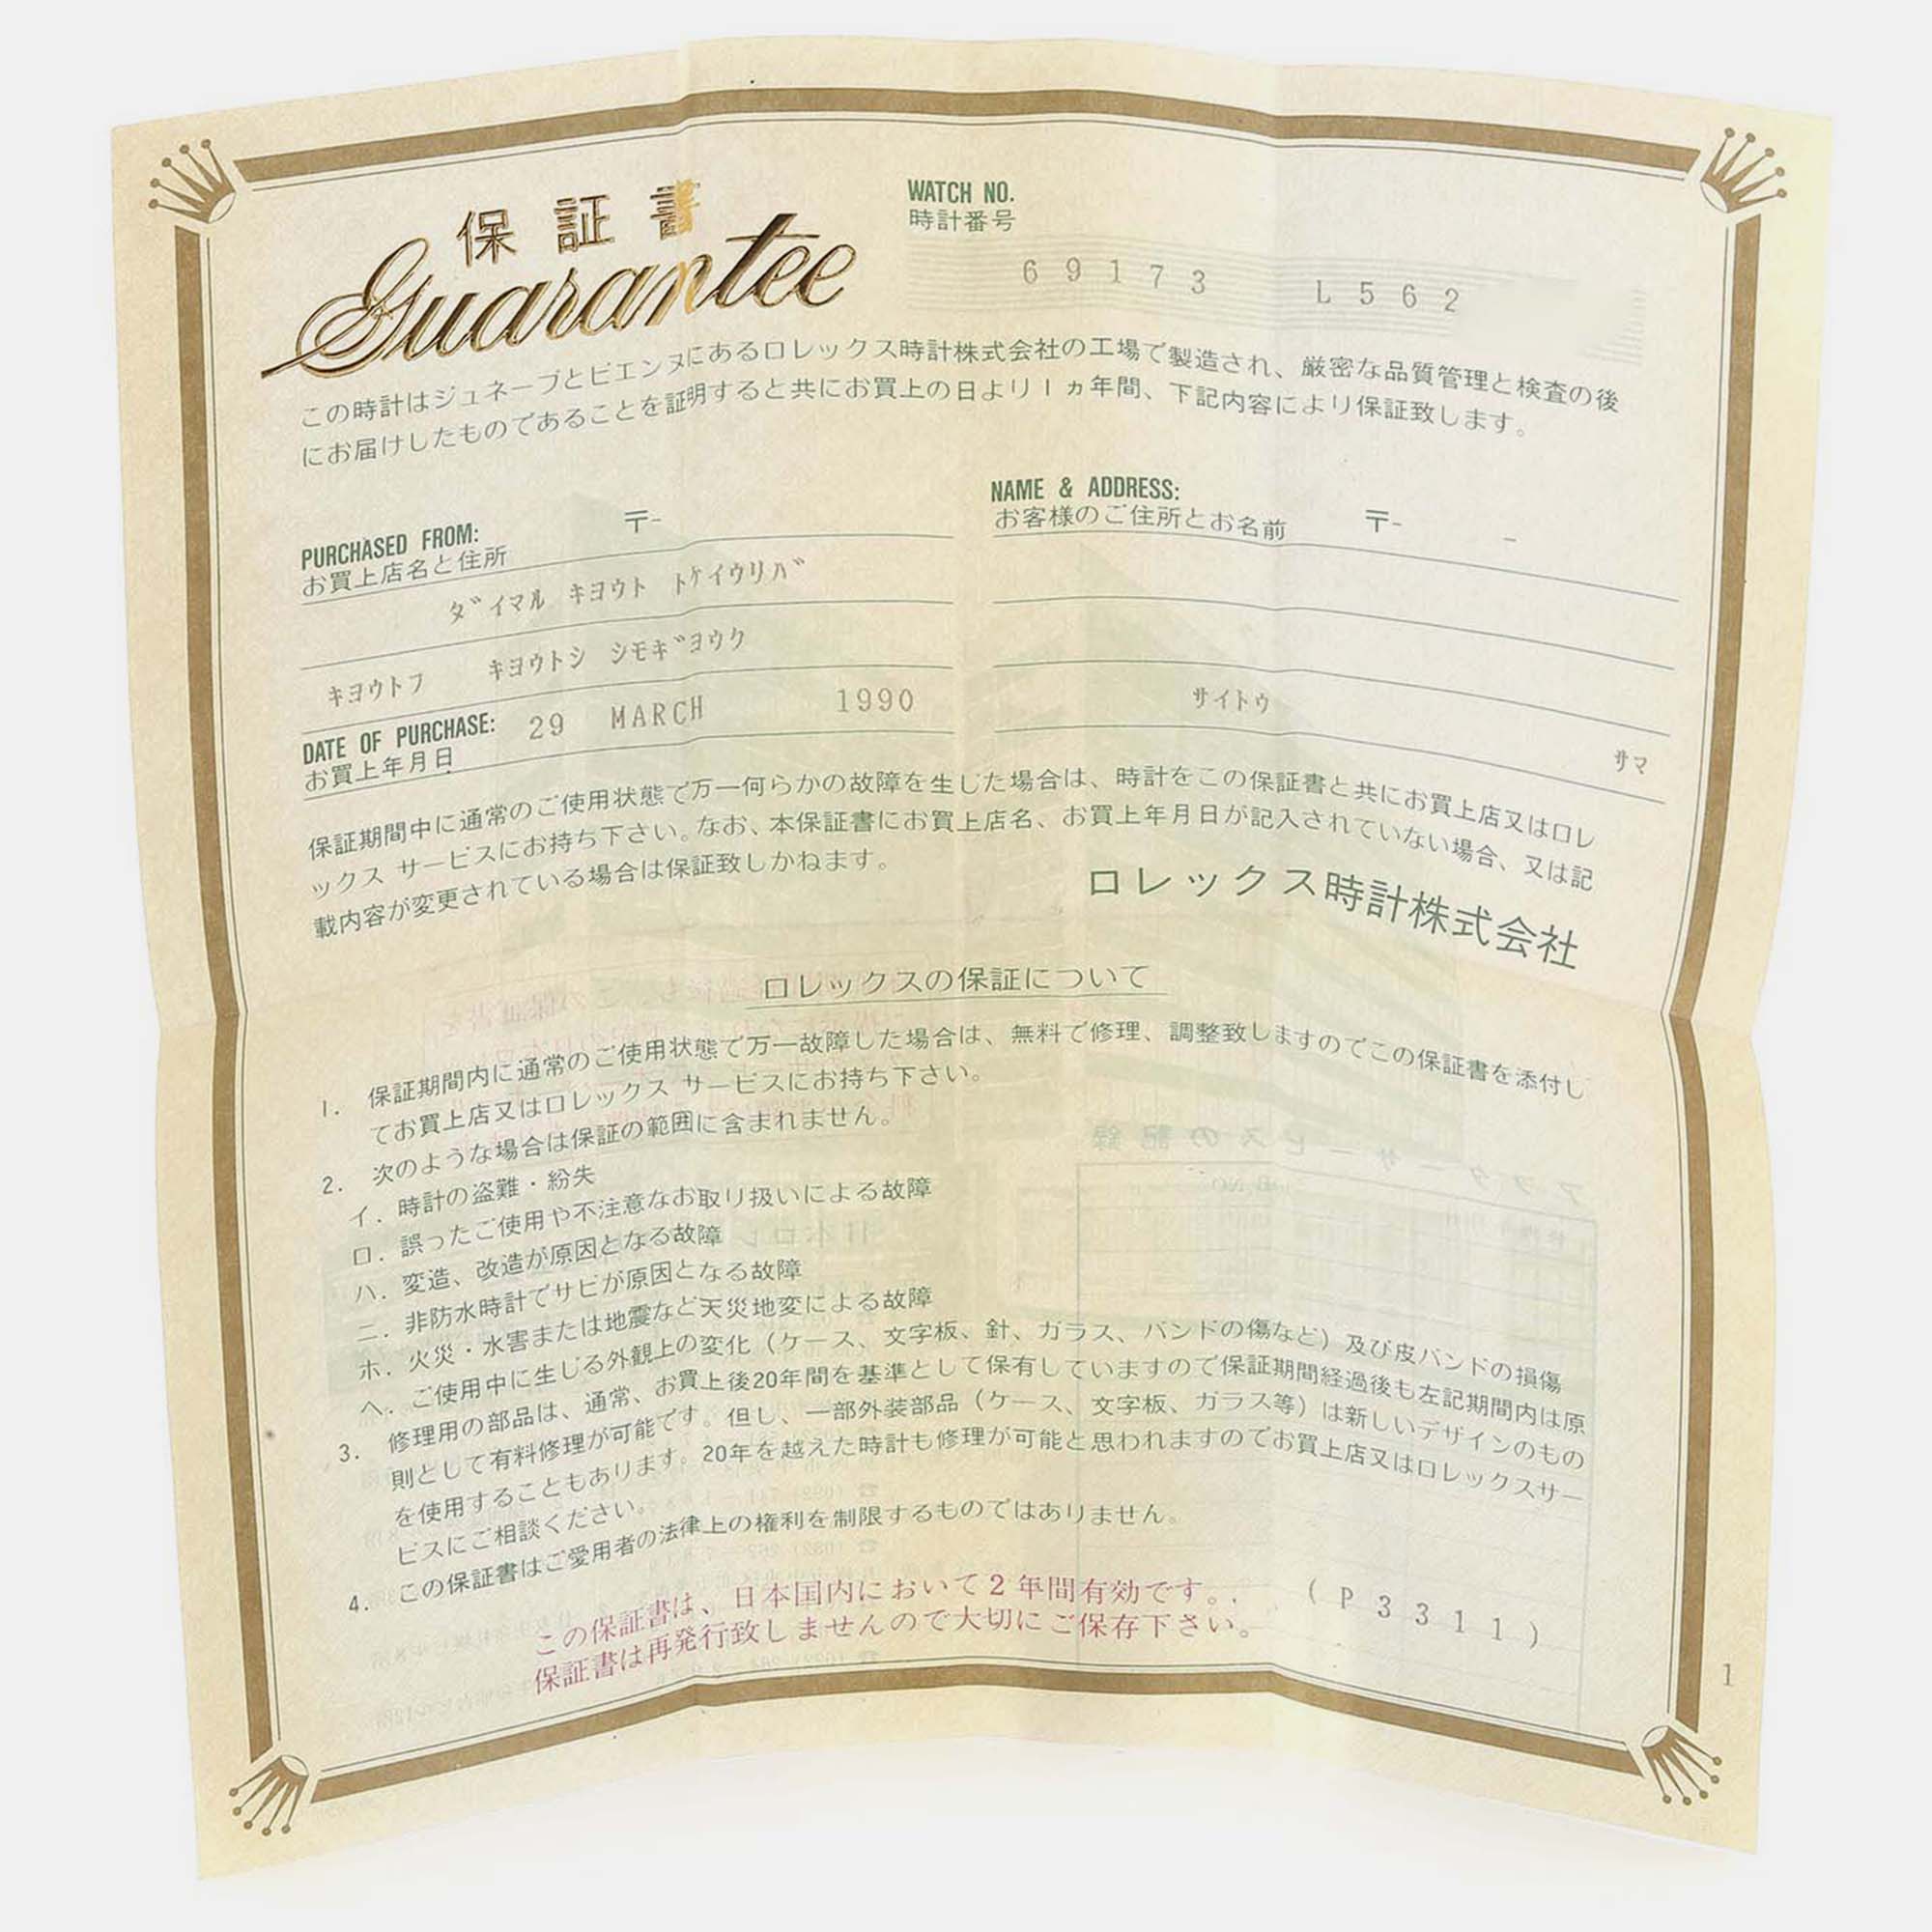 保証書
Guarantee
WATCH NO.
時計番号
69173 L562
この時計はジュネーブとビエンヌにあるロレックス時計株式会社の工場で製造され、厳密な品質管理と検査の後
にお届けしたものであることを証明すると共にお買上の日より1ヵ年間、下記内容により保証致します。
PURCHASED FROM:
お買上店名と住所
〒-
ダイマル キヨウト トケイウリバ
キヨウトフ キヨウトシ シモギヨウク
DATE OF PURCHASE: 29 MARCH 1990
お買上年月日
NAME & ADDRESS:
お客様のご住所とお名前
〒- -
サイトウ
サマ
保証期間中に通常のご使用状態で万一何らかの故障を生じた場合は、時計をこの保証書と共にお買上店又はロレ
ックス サービスにお持ち下さい。なお、本保証書にお買上店名、お買上年月日が記入されていない場合、又は記
載内容が変更されている場合は保証致しかねます。
ロレックス時計株式会社
ロレックスの保証について
1. 保証期間内に通常のご使用状態で万一故障した場合は、無料で修理、調整致しますのでこの保証書を添付し
てお買上店又はロレックス サービスにお持ち下さい。
2. 次のような場合は保証の範囲に含まれません。
イ. 時計の盗難・紛失
ロ. 誤ったご使用や不注意なお取り扱いによる故障
ハ. 変造、改造が原因となる故障
ニ. 非防水時計でサビが原因となる故障
ホ. 火災・水害または地震など天災地変による故障
ヘ. ご使用中に生じる外観上の変化（ケース、文字板、針、ガラス、バンドの傷など）及び皮バンドの損傷
3. 修理用の部品は、通常、お買上後20年間を基準として保有していますので保証期間経過後も左記期間内は原
則として有料修理が可能です。但し、一部外装部品（ケース、文字板、ガラス等）は新しいデザインのもの
を使用することもあります。20年を越えた時計も修理が可能と思われますのでお買上店又はロレックスサー
ビスにご相談ください。
4. この保証書はご愛用者の法律上の権利を制限するものではありません。
この保証書は、日本国内において2年間有効です。
保証書は再発行致しませんので大切にご保存下さい。
(P3311)
1